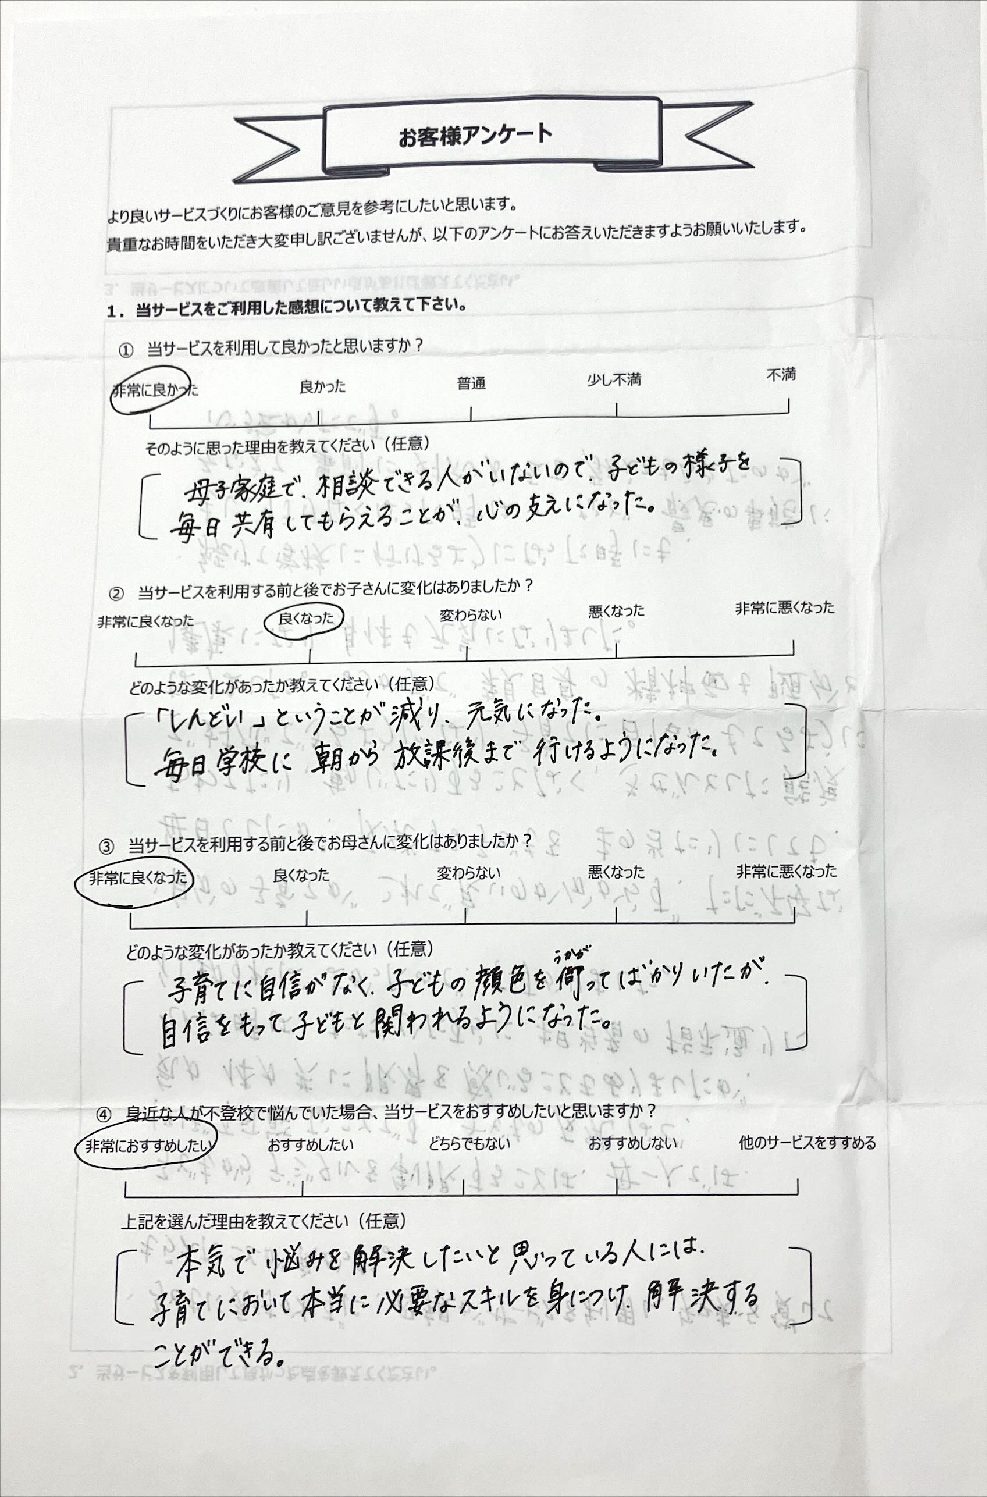 お客様アンケート
より良いサービスづくりにお客様のご意見を参考にしたいと思います。
貴重なお時間をいただき大変申し訳ございませんが、以下のアンケートにお答えいただきますようお願いいたします。
1．当サービスをご利用した感想について教えて下さい。
① 当サービスを利用して良かったと思いますか？
非常に良かった 良かった 普通 少し不満 不満
そのように思った理由を教えてください（任意）
母子家庭で、相談できる人がいないので、子どもの様子を
毎日共有してもらえることが、心の支えになった。
② 当サービスを利用する前と後でお子さんに変化はありましたか？
非常に良くなった 良くなった 変わらない 悪くなった 非常に悪くなった
どのような変化があったか教えてください（任意）
「しんどい」ということが減り、元気になった。
毎日学校に朝から放課後まで行けるようになった。
③ 当サービスを利用する前と後でお母さんに変化はありましたか？
非常に良くなった 良くなった 変わらない 悪くなった 非常に悪くなった
どのような変化があったか教えてください（任意）
うかが
子育てに自信がなく、子どもの顔色を伺ってばかりいたが、
自信をもって子どもと関われるようになった。
④ 身近な人が不登校で悩んでいた場合、当サービスをおすすめしたいと思いますか？
非常におすすめしたい おすすめしたい どちらでもない おすすめしない 他のサービスをすすめる
上記を選んだ理由を教えてください（任意）
本気で悩みを解決したいと思っている人には、
子育てにおいて本当に必要なスキルを身につけ、解決する
ことができる。